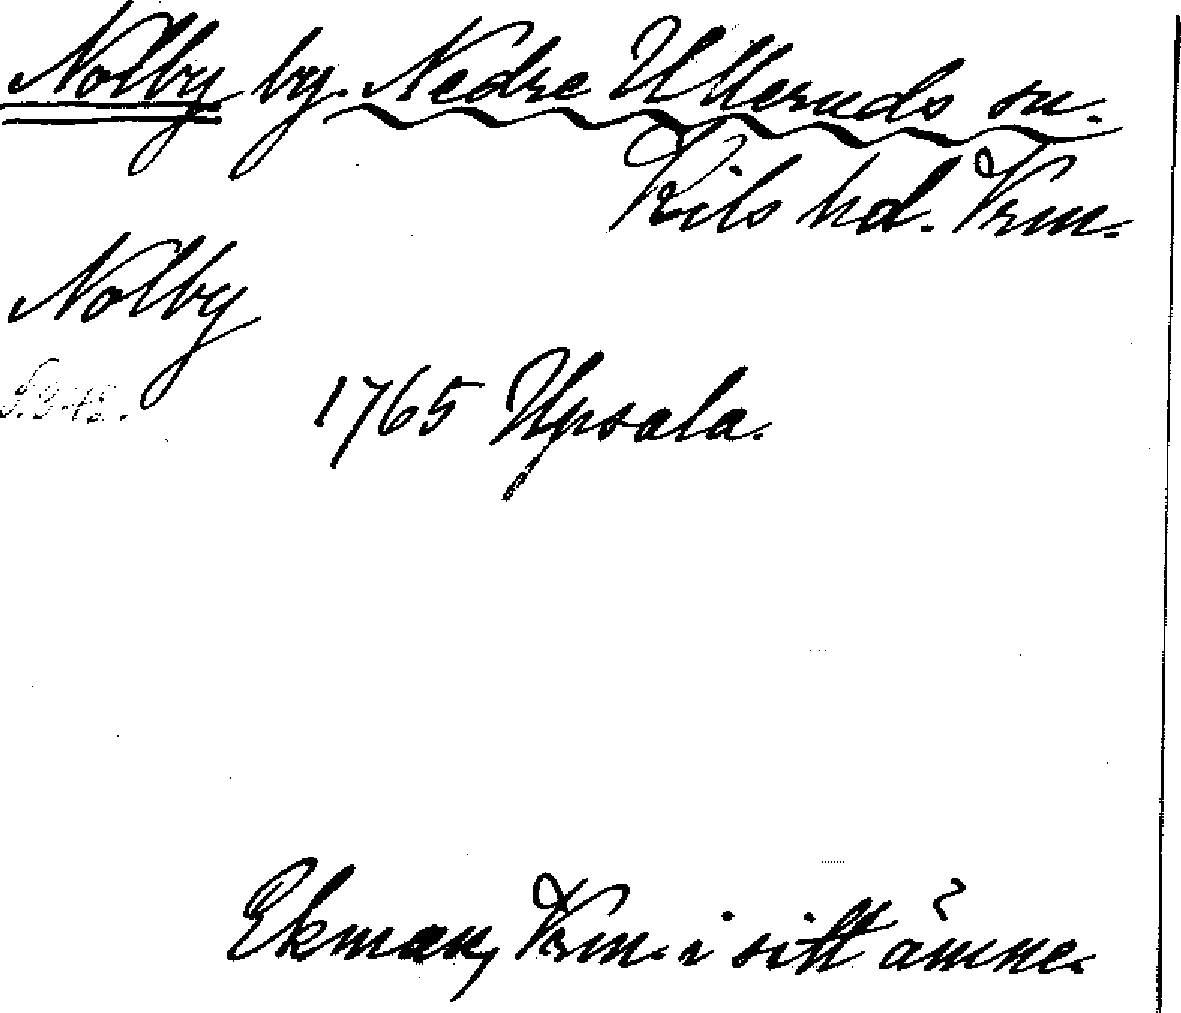 Nolby by. Nedre Ulleruds sn.
Kils hd. Vrm.
Nolby
S. 342.
1765 Upsala.
Ekman, Vrm. i sitt ämne.